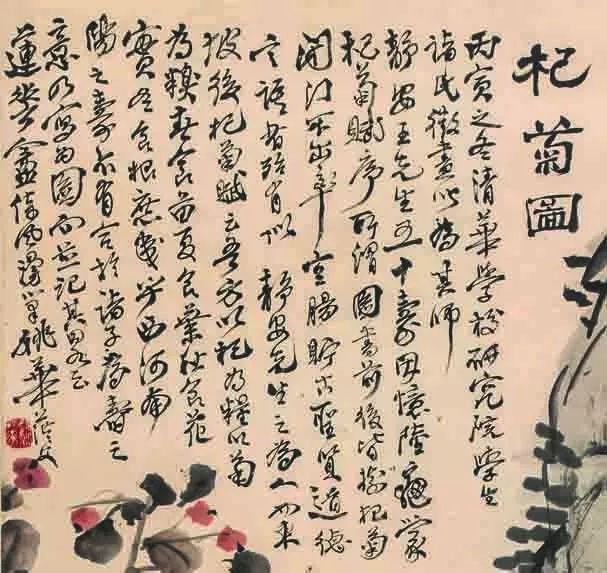 杞菊圖
丙寅之冬清華學校研究院學生
諸氏徵畫以為其師
靜安王先生五十壽因憶陸龜蒙
杞菊賦序所謂圖書前後皆樹杞菊
閉門不出率空腸貯古聖賢道德
言語者殆有似 靜安先生之為人而東
坡後杞菊賦云吾方以杞為糧以菊
為糗春食苗而夏食葉秋食花
實冬食根庶幾乎西河南
陽之壽亦有合於諸子為壽之
意乃寫為圖而並記其 云
蓮華盦 姚華茫父